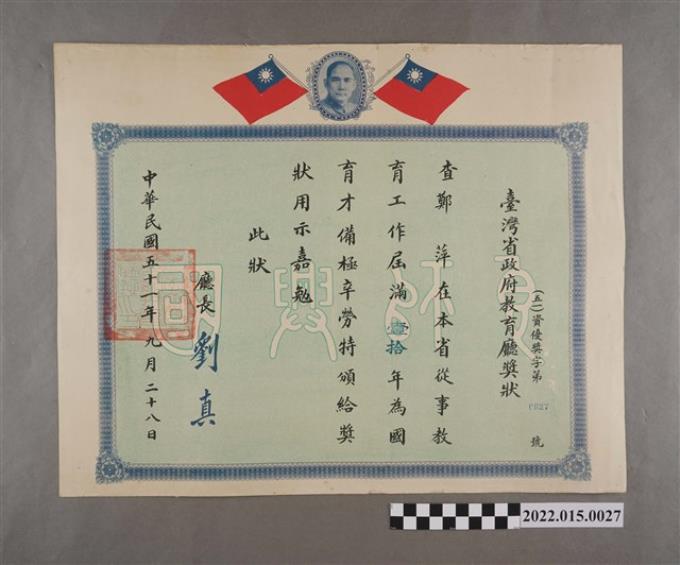 臺灣省政府教育廳獎狀
(五一)資優獎字第 號
查鄭 萍在本省從事教
育工作屆滿壹拾年為國
育才備極辛勞特頒給獎
狀用示嘉勉
此狀
廳長 劉真
中華民國五十一年九月二十八日
良師興國
2022.015.0027